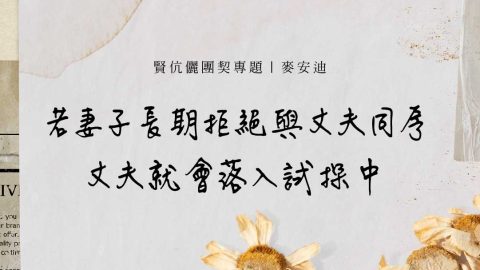 賢伉儷團契專題｜麥安迪
若妻子長期拒絕與丈夫同房
丈夫就會落入試探中